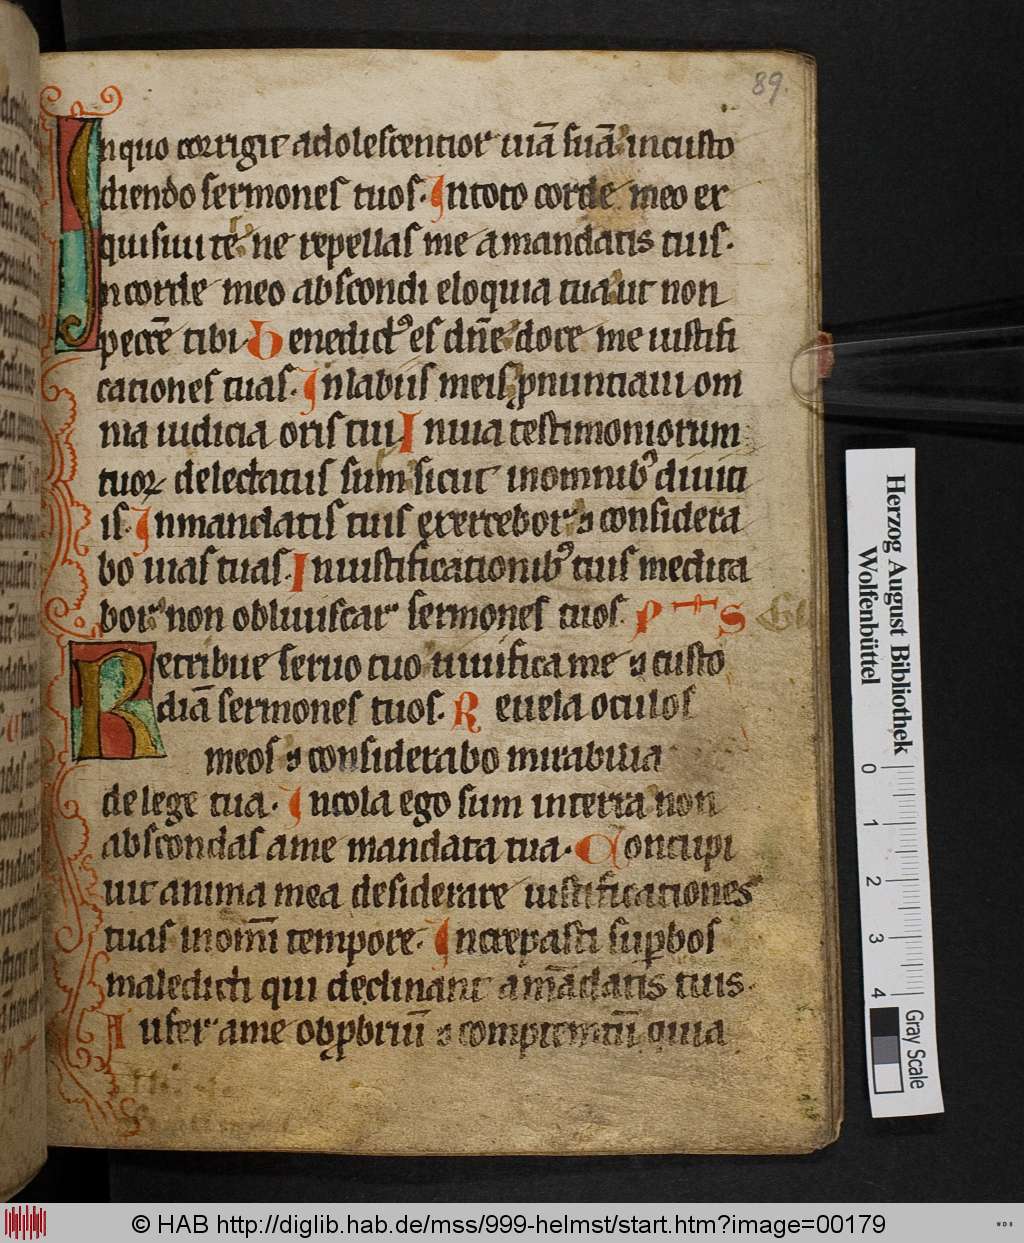 89.
In quo corrigit adolescentior uiā suā incusto
diendo sermones tuos. In toto corde meo ex
quisiui te ne repellas me amandatis tuis.
In corde meo abscondi eloquia tua ut non
peccē tibi. Benedictꝰ es dn̄e doce me iustifi
cationes tuas. In labiis meis ꝓnuntiaui om
nia iudicia oris tui. In uia testimoniorum
tuoꝝ delectatus sum sicut inomnibꝰ diuiti
is. In mandatis tuis exercebor ⁊ considera
bo uias tuas. In iustificationibꝰ tuis medita
bor non obluiscar sermones tuos. P T S
Retribue seruo tuo uiuifica me ⁊ custo
diā sermones tuos. Reuela oculos
meos ⁊ considerabo mirabilia
de lege tua. Incola ego sum interra non
abscondas ame mandata tua. Concupi
uit anima mea desiderare iustificationes
tuas inom̄i tempore. Increpasti suꝑbos
maledicti qui declinant amādatis tuis.
Aufer ame obꝓbriū ⁊ comptemtū quia
Herzog August Bibliothek
Wolfenbüttel
0 1 2 3 4
Gray Scale
© HAB http://diglib.hab.de/mss/999-helmst/start.htm?image=00179